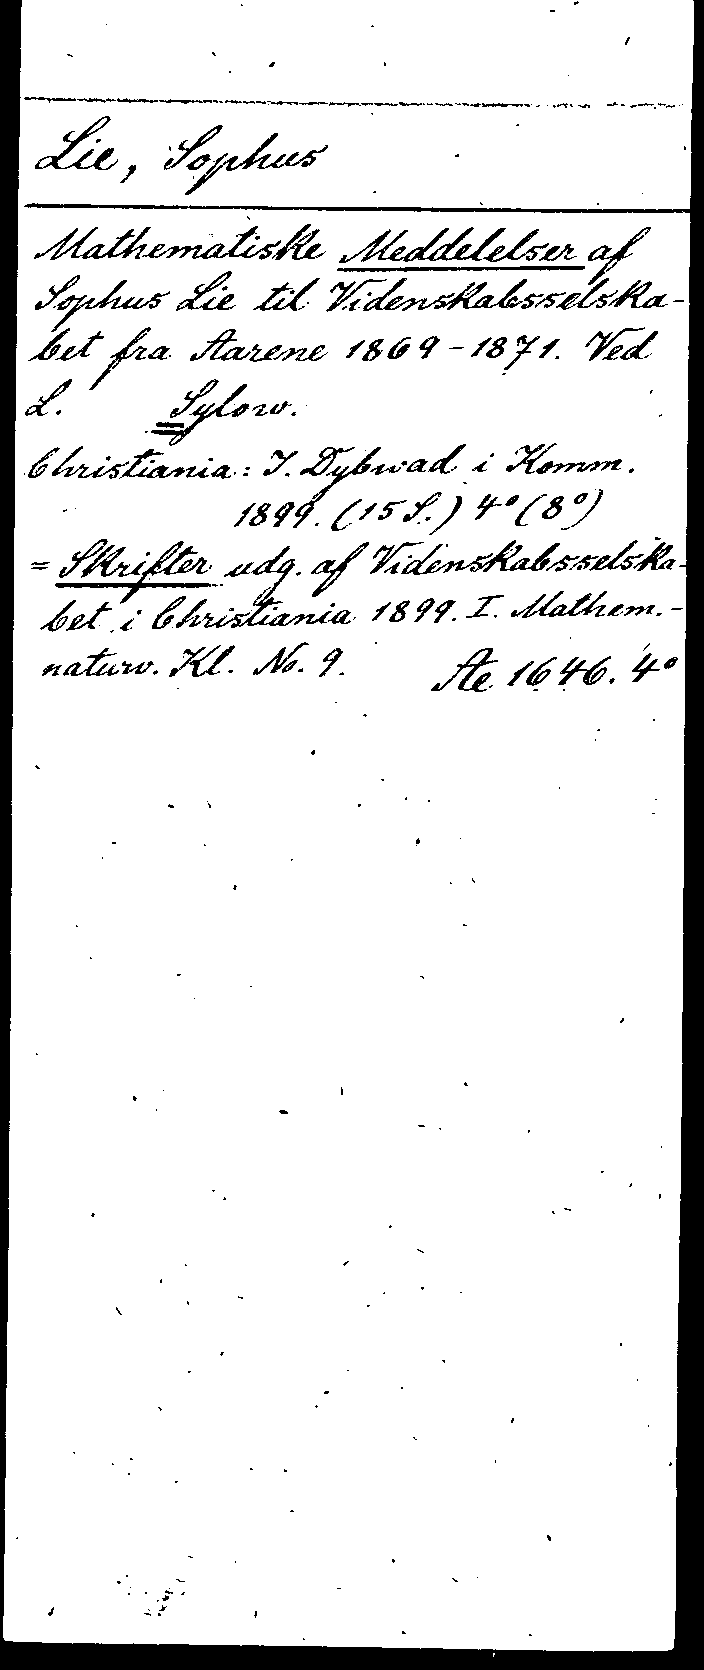 Lie, Sophus
Mathematiske Meddelelser af
Sophus Lie til Videnskabsselska-
bet fra Aarene 1869-1871. Ved
L. Sylow.
Christiania: J. Dybwad i Komm.
1899. (15 S.) 4° (8°)
= Skrifter udg. af Videnskabsselska-
bet i Christiania 1899. I. Mathem.-
naturw. Kl. No. 9. Ae 1646. 4°